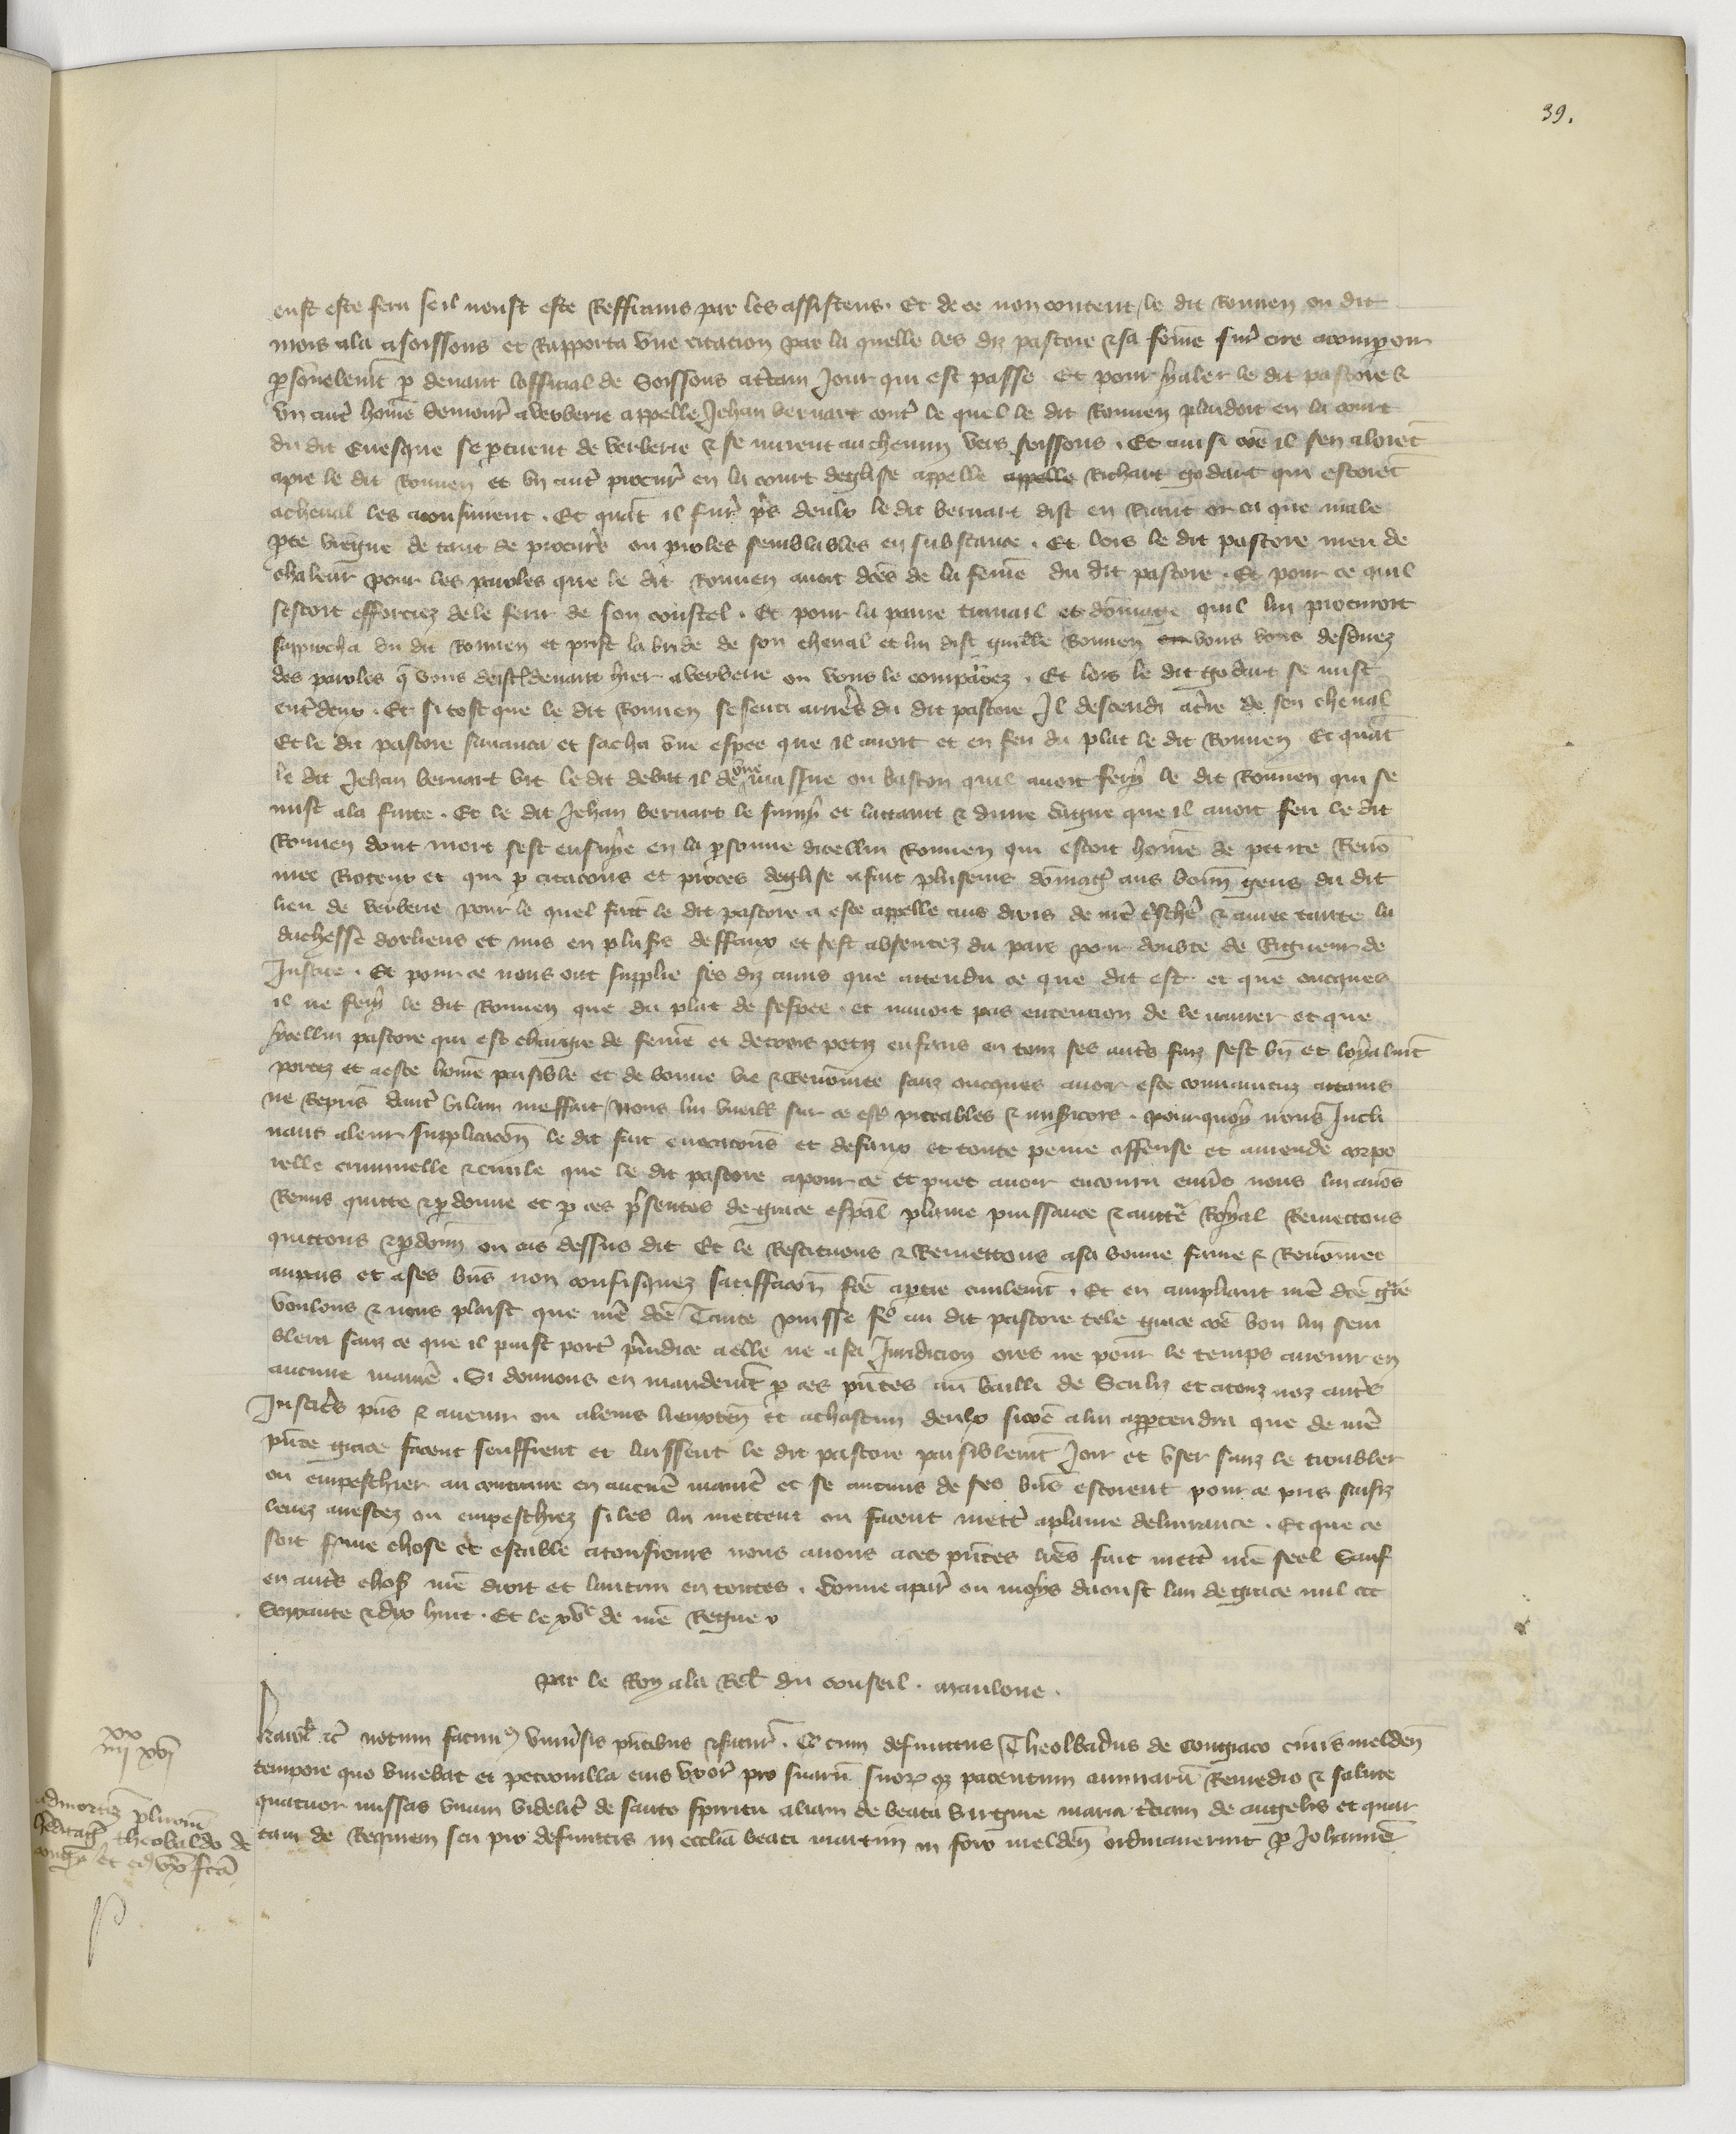 39.
eust este feru se il neust este Reffrains par les assistens. Et de ce non content le dit Rouuen ou dit
mois ala a soissons et Rapporta vne citacion par la quelle les diz pastore & sa feme fur cite a comparoir
psonelemt p deuant lofficial de Soissons a certain Jour qui est passe. Et pour y aler le dit pastore &
vn aut home demour a verberie appelle Jehan beruart cont le quel le dit Rouuen plaidoit en la court
du dit Euesque se ptirent de verberie & se mirent au chemin vers soissons. Et ainsi coe il sen aloiet
apre le dit Rouuen et vn aut procur en la court deglise appelle appelle Richart godart qui estoiet
a cheual les aconsuirent. Et quat il fur pres deulx le dit beruart dist en Riant or ca que male
pte viegne de tant de procurs ou proles semblables en substance. Et lors le dit pastore meu de
chaleur pour les paroles que le dit Rouuen auoit dces de la feme du dit pastore. Et pour ce quil
sestoit efforciez de le ferir de son coustel. Et pour la paine trauail et domage quil lui procuroit
sapprocha du dit Rouuen et prist la bride de son cheual et lui dist guille Rouuen vous vous desdirez
des paroles q vous deistes deuant hier a verberie ou vous le comparrez. Et lors le dit godart se mist
entdeux. Et si tost que le dit Rouuen se senti arriers du dit pastore Il descendi a tre de son cheual
Et le dit pastore sauanca et sacha vne espee que il auoit et en feri du plat le dit Rouuen Et quat
le dit Jehan beruart vit le dit debat il de vne massue ou baston quil auoit fery le dit Rouuen qui se
mist a la fuite. Et le dit Jehan beruart le suiuy et lattaint & dune dague que il auoit feri le dit
Rouuen dont mort sest ensuye en la psonne dicellui Rouuen qui estoit home de petite Reno
mee Rioteux et qui p citacons et proces deglise a fait pluseurs domag aus bonn gens du dit
lieu de verberie pour le quel fait le dit pastore a este appelle aus drois de nre tscher & amee tante la
duchesse dorliens et mis en plus deffaux et sest absentez du pais pour doubte de Rigueur de
Justice. Et pour ce nous ont supplie ses diz amis que attendu ce que dit est et que oncques
il ne fery le dit Rouuen que du plat de sespee. et nauoit pas entencion de le naurer et que
ycellui pastore qui est chargie de feme et de trois petiz enfans en touz ses auts faiz sest bn et loyalmt
portez et a este home paisible et de bonne vie & Renomee sanz oncques auoir este conuaincuz attains
ne Repris daut vilain meffait nous lui vueill sur ce est piteables & misicors. pourquoy nous Incli
nans a leur supplicacon le dit fait euocacions et defaux et toute peine offense et amende corpo
relle criminelle & ciuile que le dit pastore a pour ce et puet auoir encouru enuers nous lui auos
Remis quitte & pdonne et p ces psentes de grace espal plaine puissance & autte Royal Remettons
quittons & pdonn ou cas dessus dit Et le Restituons & Remettons a sa bonne fame & Renomee
au pais et a ses bns non confisquez satiffacon fce a ptie ciuilemt. Et en ampliant nre dce gre
voulons & nous plaist que nre dce Tante puisse fe au dit pastore tele grace coe bon lui sem
blera sanz ce que il puist port piudice a elle ne a sa Juridicion ores ne pour le temps auenir en
aucune maniere. Si donnons en mandemt p ces pntes au bailli de Senliz et a touz noz auts
Justices pns & auenir ou a leurs lieuxten et a chascun deulx sicoe a lui apptendra que de nre
pnte grace facent seuffrent et laissent le dit pastore paisiblemt Joir et vser sanz le troubler
ou empeschier au contraire en aucune manie et se aucuns de ses bns estoient pour ce pris saisiz
leuez arrestez ou empeschiez si les lui mettent ou facent mett a plaine deliurance. Et que ce
soit ferme chose et estable a tousiours nous auons a ces pntes lres fait mett nre seel Sauf
en auts chos nre droit et lautrui en toutes. Donne a par ou moys daoust lan de grace mil ccc
Soixante & dix huit. Et le xve de nre Regne
par le Roy a la Rel du conseil. maulone.
Karol etc notum facimus vniusis pntibus & futur. Q cum defunctus Theobaldus de Congiaco ciuis melden
tempore quo viuebat et petronilla eius vxor pro suaru suorq parentum animaru Remedio & salute
quatuor missas vnam videlit de santo spiritu aliam de beata virgine maria tciam de angelis et quar
tam de Requiem seu pro defunctis in ecclia beati martini in foro melden ordinauerint p Johanne
xx
iiii xvi
admortiz plurium
heditag theobaldo de
cong et ei vxo fca